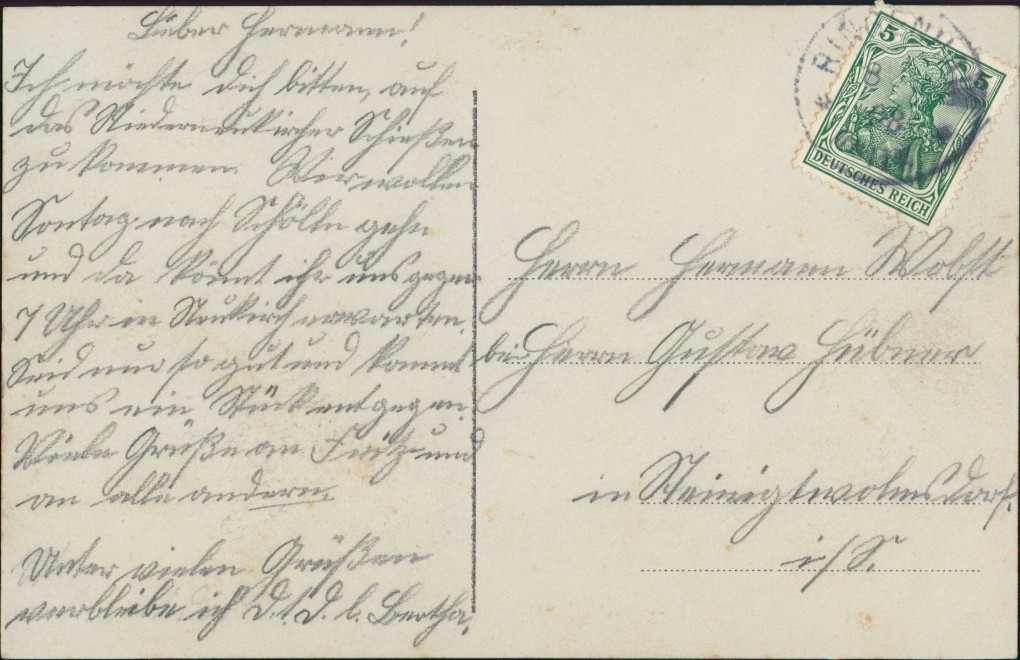 Lieber Hermann!
Ich möchte dich bitten, auf
das Niederneukircher Schießen
zu kommen. Wir wollen
Sontag nach Schölln gehn
und da könnt ihr uns gegen
7 Uhr in Neukirch erwarten.
Seid nur so gut und kommt
uns ein Stück entgegen.
Viele Grüße an Fritz und
an alle andern.
Unter vielen Grüßen
verbleibe ich D. t. D. l. Bertha.
5 5
DEUTSCHES REICH
Herrn Hermann Wobst
bei Herrn Gustav Hübner
in Steinigtwolmsdorf.
i/S.